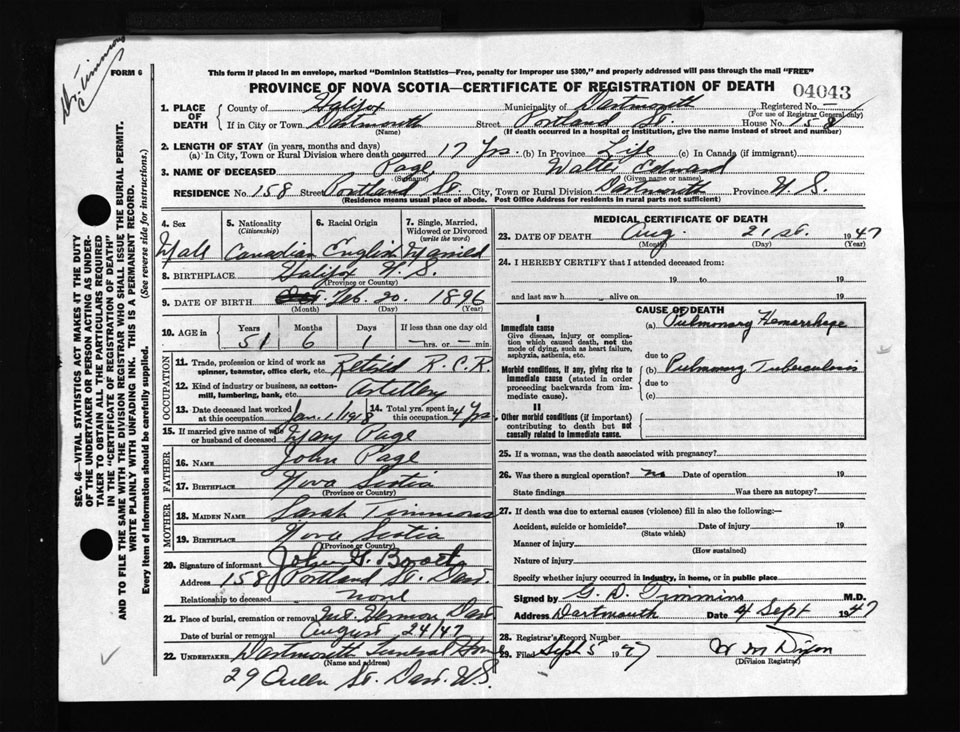 Dr. Timmons
FORM 6
This form if placed in an envelope, marked "Dominion Statistics—Free, penalty for improper use $300," and properly addressed will pass through the mail "FREE"
PROVINCE OF NOVA SCOTIA—CERTIFICATE OF REGISTRATION OF DEATH 04043
1. PLACE OF DEATH County of Halifax Municipality of Dartmouth Registered No.
(For use of Registrar General only)
If in City or Town Dartmouth Street Portland St. House No. 158
(Name) (If death occurred in a hospital or institution, give the name instead of street and number)
2. LENGTH OF STAY (in years, months and days)
(a) In City, Town or Rural Division where death occurred 17 yrs. (b) In Province Life (c) In Canada (if immigrant)
3. NAME OF DECEASED Page Walter Edward
(Surname) (Given name or names)
RESIDENCE No. 158 Street Portland St. City, Town or Rural Division Dartmouth Province N.S.
(Residence means usual place of abode. Post Office Address for residents in rural parts not sufficient)
4. Sex 5. Nationality (Citizenship) 6. Racial Origin 7. Single, Married, Widowed or Divorced (write the word)
Male Canadian English Married
8. BIRTHPLACE Halifax N.S.
(Province or Country)
9. DATE OF BIRTH Feb. 20. 1896
(Month) (Day) (Year)
10. AGE in Years Months Days If less than one day old
51 6 1 hrs. or min.
OCCUPATION
11. Trade, profession or kind of work as spinner, teamster, office clerk, etc. Retired R.C.R.
12. Kind of industry or business, as cotton-mill, lumbering, bank, etc. Artillery
13. Date deceased last worked at this occupation Jan. 1/1918 14. Total yrs. spent in this occupation 4 yrs
15. If married give name of wife or husband of deceased Mary Page
FATHER
16. NAME John Page
17. BIRTHPLACE Nova Scotia
(Province or Country)
MOTHER
18. MAIDEN NAME Sarah Timmons
19. BIRTHPLACE Nova Scotia
(Province or Country)
20. Signature of informant John G.
Address 158 Portland St. Dart.
Relationship to deceased none
21. Place of burial, cremation or removal Mt. Hermon Dart
Date of burial or removal August 24/47
22. UNDERTAKER Dartmouth Funeral Home
(Name and address)
29 Queen St. Dart. N.S.
MEDICAL CERTIFICATE OF DEATH
23. DATE OF DEATH Aug. 21st. 1947
(Month) (Day) (Year)
24. I HEREBY CERTIFY that I attended deceased from:
19 to 19
and last saw h alive on 19
CAUSE OF DEATH
I
Immediate cause (a) Pulmonary Hemorrhage
Give disease, injury or complication which caused death, not the mode of dying, such as heart failure, asphyxia, asthenia, etc.
due to
Morbid conditions, if any, giving rise to immediate cause (stated in order proceeding backwards from immediate cause). (b) Pulmonary Tuberculosis
due to
(c)
II
Other morbid conditions (if important) contributing to death but not causally related to immediate cause.
25. If a woman, was the death associated with pregnancy?
26. Was there a surgical operation? no Date of operation 19
State findings Was there an autopsy?
27. If death was due to external causes (violence) fill in also the following:—
Accident, suicide or homicide? Date of injury 19
(State which)
Manner of injury
(How sustained)
Nature of injury
Specify whether injury occurred in industry, in home, or in public place
Signed by G. D. Timmins M.D.
Address Dartmouth Date 4 Sept 1947
28. Registrar's Record Number
29. Filed Sept 5 1947 W M Dixon
(Division Registrar)
SEC. 46—VITAL STATISTICS ACT MAKES IT THE DUTY
OF THE UNDERTAKER OR PERSON ACTING AS UNDER-
TAKER TO OBTAIN ALL THE PARTICULARS REQUIRED
IN THE "CERTIFICATE OF REGISTRATION OF DEATH"
AND TO FILE THE SAME WITH THE DIVISION REGISTRAR WHO SHALL ISSUE THE BURIAL PERMIT.
WRITE PLAINLY WITH UNFADING INK. THIS IS A PERMANENT RECORD.
Every item of information should be carefully supplied. (See reverse side for instructions.)